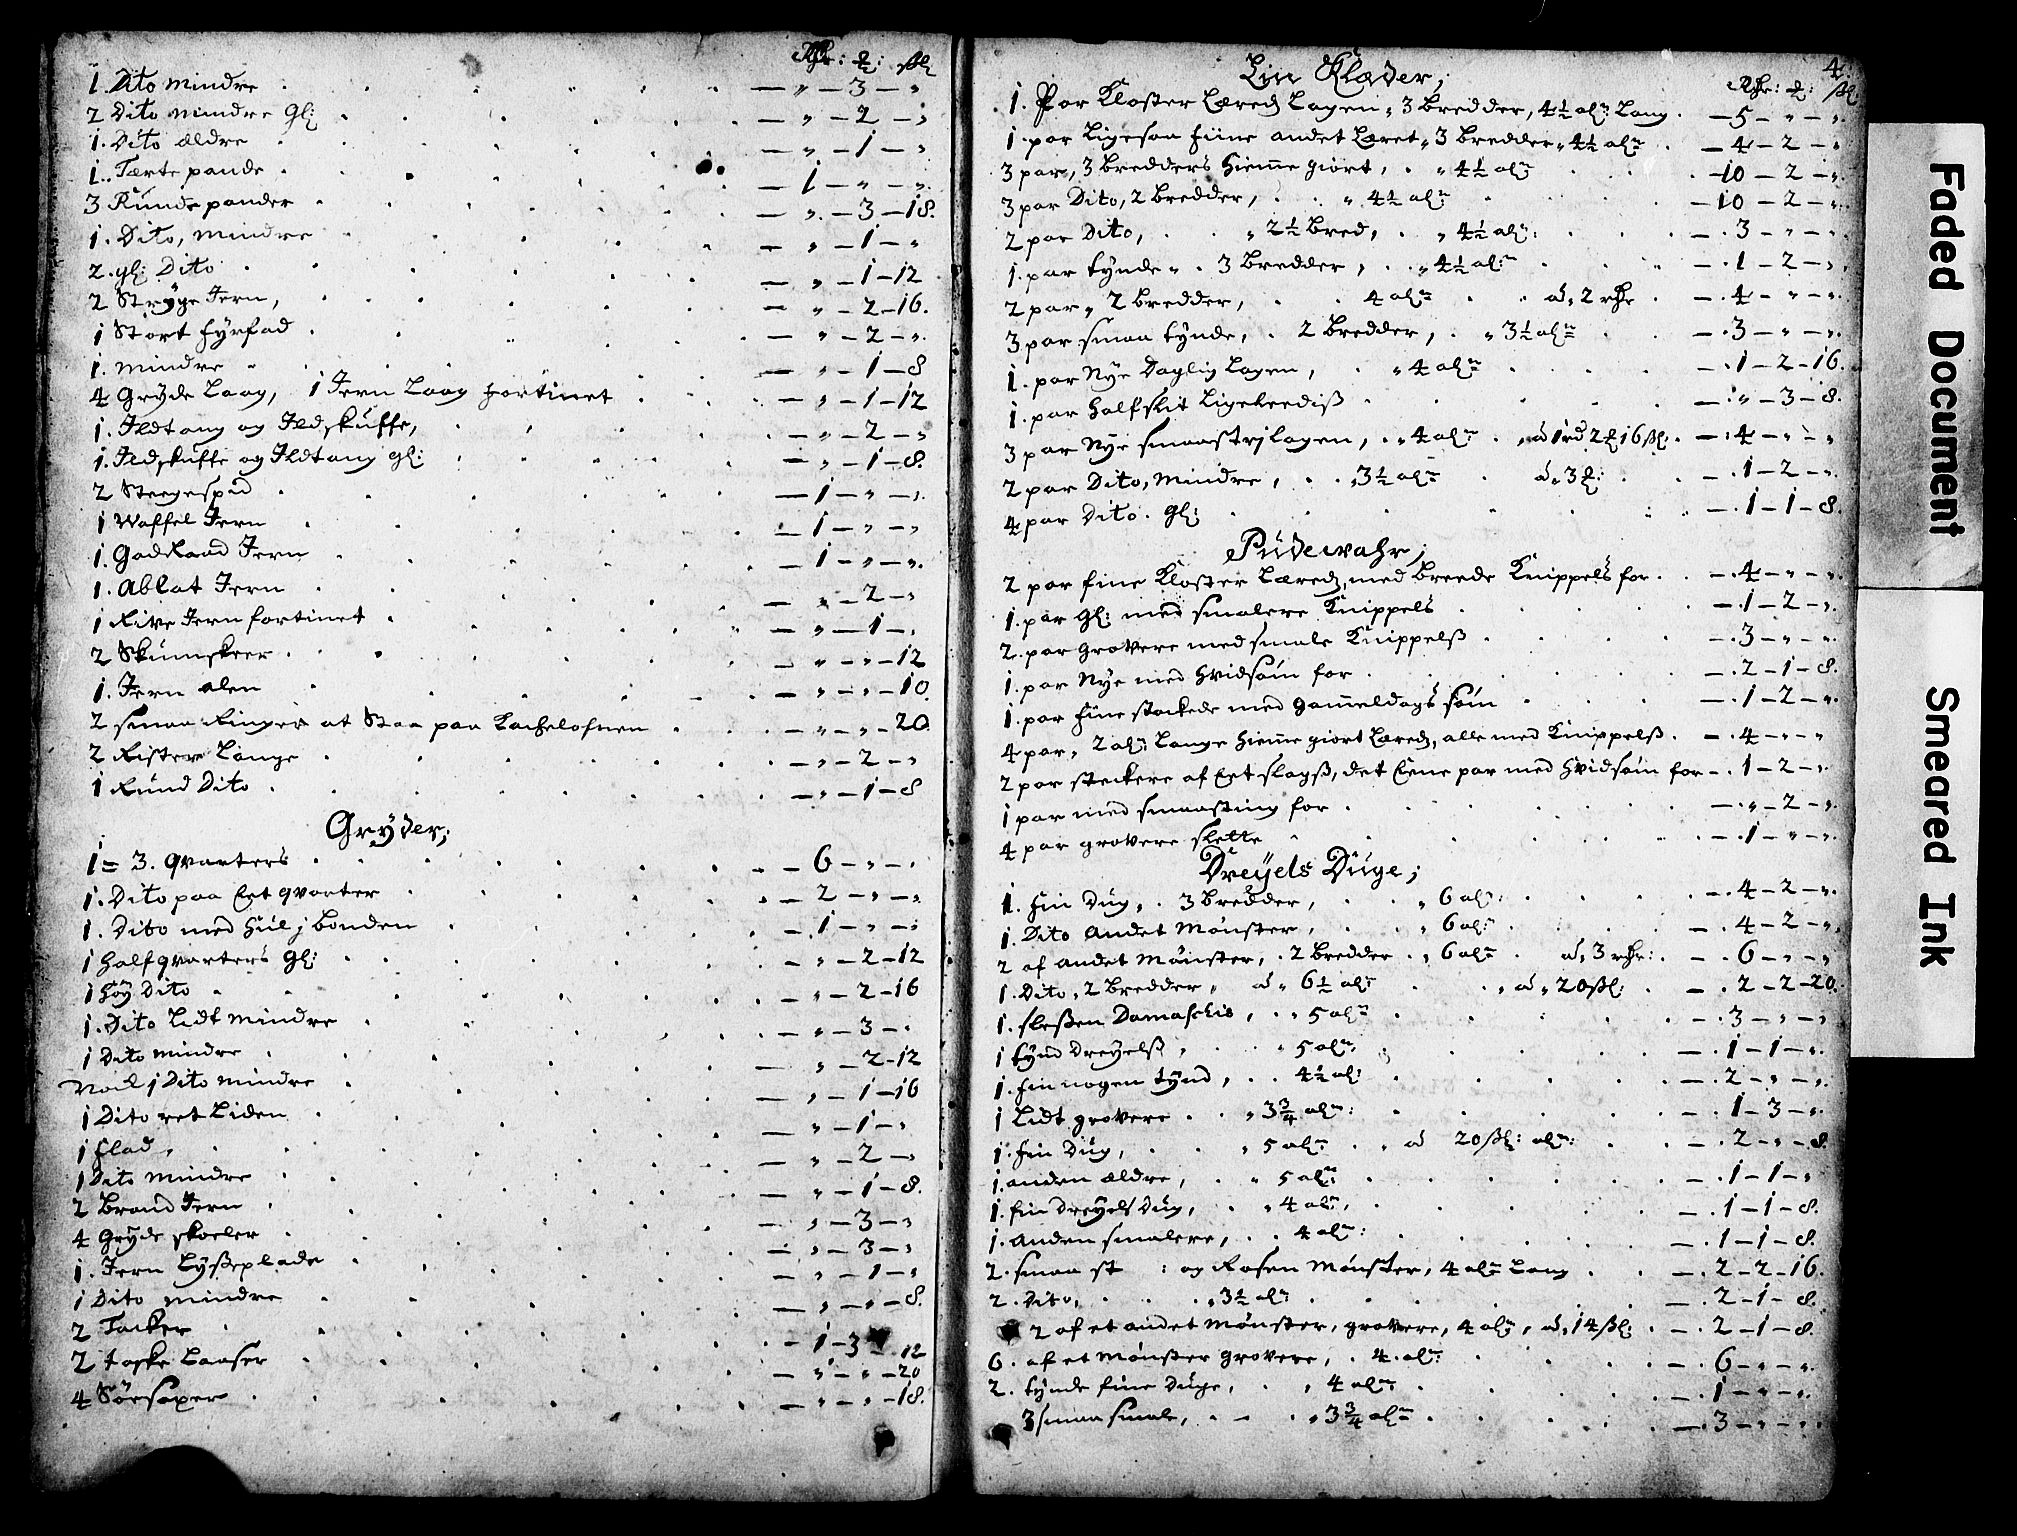 Rdr: ℔: ßl
1. Dito mindre — " — 3 — "
2 Dito mindre Gl: — " — 2 — "
1. Dito ældre — " — 1 — "
1. Tærte pande — 1 — " — "
3 Runde pander — " — 3 — 18.
1. Dito, mindre — " — 1 — "
2. gl: Dito — " — 1 — 12
2 Stryge Jern, — " — 2 — 16.
1 Stort fyrfad — " — 2 — "
1. mindre — " — 1 — 8
4 Gryde Laag, 1 Jern Laag fortinet — " — 1 — 12
1. Ildtang og Ildskuffe, — " — 2 — "
1. Ildskuffe og Ildtang gl: — " — 1 — 8.
2 Stegespid — 1 — " — "
1 Waffel Jern — 1 — " — "
1. Godraad Jern — 1 — " — "
1. Ablat Jern — " — 2 — "
1 Rive Jern fortinet — " — 1 — "
2 Skumskeer — " — " — 12
1. Jern alen — " — " — 10.
2 smaa Ringer at Staa paa Kachelofnen — " — " — 20
2 Rister Lange — " — 2 — "
1 Rund Dito — " — 1 — 8
Gryder;
1 = 3. qvarters — 6 — " — "
1. Dito paa Eet qvarter — 2 — " — "
1. Dito med Hul j bonden — 1 — " — "
1 halfqvarters Gl: — " — 2 — 12
1 høy Dito — " — 2 — 16
1. Dito Lidt mindre — " — 3 — "
1 Dito mindre — " — 2 — 12
Nock 1 Dito mindre — " — 1 — 16
1 Dito ret Liden — " — 1 — "
1 flad, — " — 2 — "
1 Dito mindre — " — 1 — 8.
2 Brand Jern — " — 3 — "
4 Gryde skoeler — " — 3 — "
1. Jern Lysseplade — " — 1 — "
1 Dito mindre — " — " — 8.
2 Tacker — 1 — 3 — 12
2 taske Laaser — " — " — 20
4 Sørsaxer — " — " — 18.
4.
Lin Klæder;
Rdr: ℔: ßl
1. Par Kloster Læreds Lagen, 3 bredder, 4½ alⁿ: Lang — 5 — " — "
1 par Ligesaa fiine andet Læret, 3 bredder, 4½ alⁿ — 4 — 2 — "
3 par, 3 bredders Hieme giort, 4½ alⁿ — 10 — 2 — "
3 par Dito, 2 bredder, 4½ alⁿ — 10 — 2 — "
2 par Dito, 2½ bred, 4½ alⁿ: — 3 — " — "
1. par tynde, 3 bredder, 4½ alⁿ — 1 — 2 — "
2 par, 2 bredder, 4 alⁿ a, 2 rdr — 4 — " — "
3 par smaa tynde, 2 bredder, 3½ alⁿ — 3 — " — "
1. par Nye Daglig Lagen, 4 alⁿ — 1 — 2 — 16.
1. par halfslit Ligeleediß — " — 3 — 8.
3 par Nye smaastrj lagen, 4 alⁿ a 1 rd 2 ℔ 16 ßl. — 4 — " — "
2 par Dito, mindre, 3½ alⁿ a, 3 ℔: — 1 — 2 — "
4 par Dito. Gl: — 1 — 1 — 8.
Pudewahr;
2 par fine Kloster Læreds, med breede Knippels for — 4 — " — "
1. par Gl: med smalere Knippels — 1 — 2 — "
2. par grovere med smale Knippelß — 3 — " — "
1. par Nye med Hvidsøm for — 2 — 1 — 8.
1. par fine stackede med Gameldags søm — 1 — 2 — "
4 par, 2 alⁿ: Lange Hieme giort Læreds, alle med Knippelß — 4 — " — "
2 par steckere af Eet slagß, det Eene par med Hvidsøm for — 1 — 2 — "
1 par med smaasting for — " — 2 — "
4 par grovere slette — 1 — " — "
Dreyels Duge;
1. Fin Dug, 3 bredder, 6 alⁿ: — 4 — 2 — "
1. Dito Andet Mønster, 6 alⁿ — 4 — 2 — "
2 af Andet Mønster, 2 bredder, 6 alⁿ a, 3 rdr: — 6 — " — "
1. Dito, 2 bredder, a 6½ alⁿ, a, 20 ßl: — 2 — 2 — 20.
1. slessen Damaskis, 5 alⁿ — 3 — " — "
1 tynd Dreyelß, 5 alⁿ: — 1 — 1 — "
1. fin nogen tynd, 4½ al: — 2 — " — "
1 Lidt grovere, 3¾ alⁿ: — 1 — 3 — "
1. Fin Dug, 5 alⁿ, a 20 ßl: alⁿ: — 2 — " — 8.
1. anden ældre, 5 alⁿ — 1 — 1 — "
1. fin Dreyels Dug, 4 alⁿ, — 1 — 1 — 8.
1. Anden smalere, 4 alⁿ: — 1 — 1 — 8.
2. smaa st : og Rosen Mønster, 4 alⁿ Lang — 2 — 2 — 16.
2. Dito, 3½ alⁿ: — 2 — 1 — 8.
2 af et andet Mønster, grovere, 4 alⁿ, a, 14 ßl: — 2 — 1 — 8.
6. af et Mønster Grovere, 4. alⁿ: — 6 — " — "
2. tynde fine Duge, 4 alⁿ — 1 — " — "
3 smaa smale, 3¾ alⁿ — 3 — " — "
Faded Document
Smeared Ink